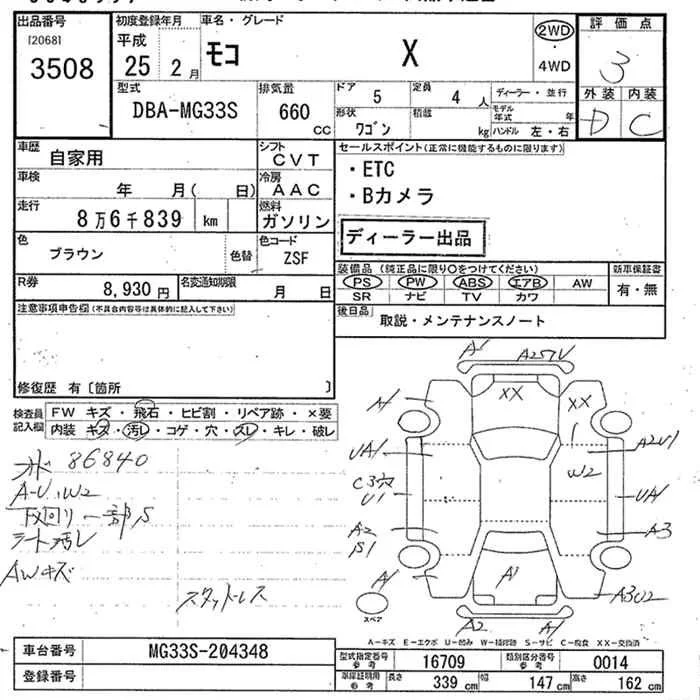 出品番号
[2068]
3508
初度登録年月
平成
25 2 月
車名・グレード
モコ X
2WD
・
4WD
評価点
3
外装 内装
D C
型式
DBA-MG33S
排気量
660
CC
ドア
5
定員
4 人
ディーラー・並行
モデル年式 年
形状
ワゴン
積載
kg
ハンドル 左・右
車歴
自家用
シフト
CVT
車検
年 月( 日)
冷房
AAC
走行
8万6千839 km
燃料
ガソリン
色
ブラウン
色替
色コード
ZSF
R券
8,930 円
名変通知期限
月 日
セールスポイント(正常に機能するものに限ります)
・ETC
・Bカメラ
ディーラー出品
装備品 (純正品に限り○をつけてください)
PS PW ABS エアB AW
SR ナビ TV カワ
新車保証書
有・無
後日品
取説・メンテナンスノート
注意事項申告欄(不具合内容等は具体的に記入して下さい)
修復歴 有〔箇所 〕
検査員記入欄
FW キズ・飛石・ヒビ割・リペア跡・×要
内装 キズ・汚レ・コゲ・穴・スレ・キレ・破レ
86840
A-U、W2
下回り一部S
シート汚レ
AWキズ
スタッドレス
A1
XX
XX
A1
UA1
A2U1
W2
C3穴
U1
UA1
A2
S1
A3
A1
A1
A3U2
スペア
A2
A1
A-キズ E-エクボ U-凹み W-補修跡 S-サビ C-腐食 XX-交換済
車台番号
MG33S-204348
登録番号
型式指定番号
参考
16709
類別区分番号
参考
0014
車庫証明用
参考
長さ
339 cm
幅
147 cm
高さ
162 cm